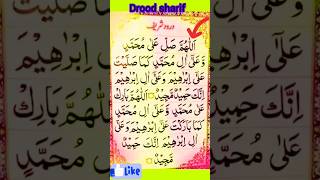 Drood sharif
درود شریف
اَللّٰهُمَّ صَلِّ عَلٰى مُحَمَّدٍ
وَّعَلٰٓى اٰلِ مُحَمَّدٍ كَمَا صَلَّيْتَ
عَلٰٓى اِبْرٰهِيْمَ وَعَلٰٓى اٰلِ اِبْرٰهِيْمَ
اِنَّكَ حَمِيْدٌ مَّجِيْدٌ اَللّٰهُمَّ بَارِكْ
عَلٰى مُحَمَّدٍ وَّعَلٰٓى اٰلِ مُحَمَّدٍ
كَمَا بَارَكْتَ عَلٰٓى اِبْرٰهِيْمَ وَعَلٰٓى
اٰلِ اِبْرٰهِيْمَ اِنَّكَ حَمِيْدٌ
مَّجِيْدٌ
Like